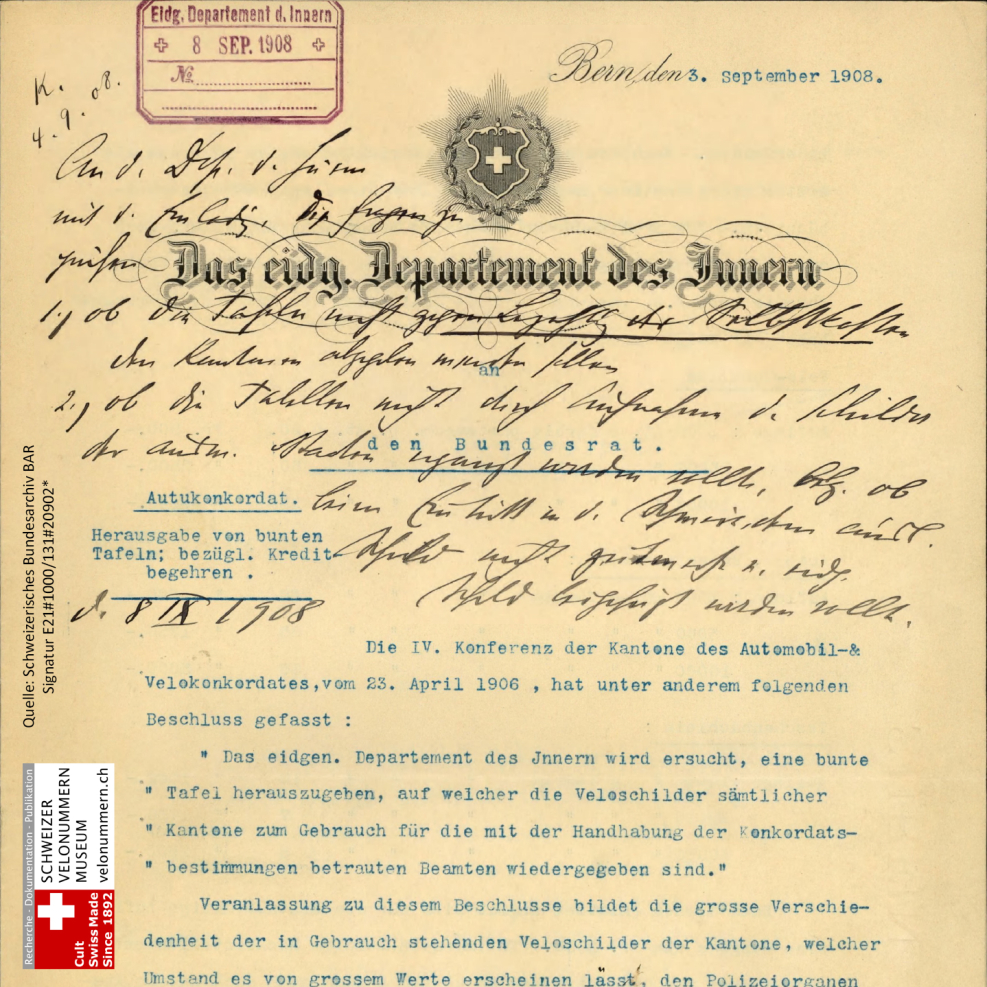 Eidg. Departement d. Innern
8 SEP. 1908
№
Bern, den 3. September 1908.
K.
4.9.08.
An d. Dep. d. Innern
mit d. Einladg, die Fragen zu
prüfen
Das eidg. Departement des Innern
1.) ob die Tafeln nicht gegen der Selbstkosten
den Kantonen abgegeben werden sollen
an
2.) ob die Tabellen nicht durch Aufnahme d. Schilder
der Staaten ergänzt werden sollte, bzg. ob
den Bundesrat.
Autukonkordat.
beim Eintritt in d. Schweiz dem
Herausgabe von bunten
Tafeln; bezügl. Kredit-
begehren .
Schild nicht u. eidg.
Schild beigefügt werden sollte.
d. 8 IX 1908
Die IV. Konferenz der Kantone des Automobil-&
Velokonkordates,vom 23. April 1906 , hat unter anderem folgenden
Beschluss gefasst :
" Das eidgen. Departement des Jnnern wird ersucht, eine bunte
" Tafel herauszugeben, auf welcher die Veloschilder sämtlicher
" Kantone zum Gebrauch für die mit der Handhabung der Konkordats-
" bestimmungen betrauten Beamten wiedergegeben sind."
Veranlassung zu diesem Beschlusse bildet die grosse Verschie-
denheit der in Gebrauch stehenden Veloschilder der Kantone, welcher
Umstand es von grossem Werte erscheinen lässt, den Polizeiorganen
Quelle: Schweizerisches Bundesarchiv BAR
Signatur E21#1000/131#20902*
Recherche - Dokumentation - Publikation
SCHWEIZER
VELONUMMERN
MUSEUM
velonummern.ch
Cult
Swiss Made
Since 1892